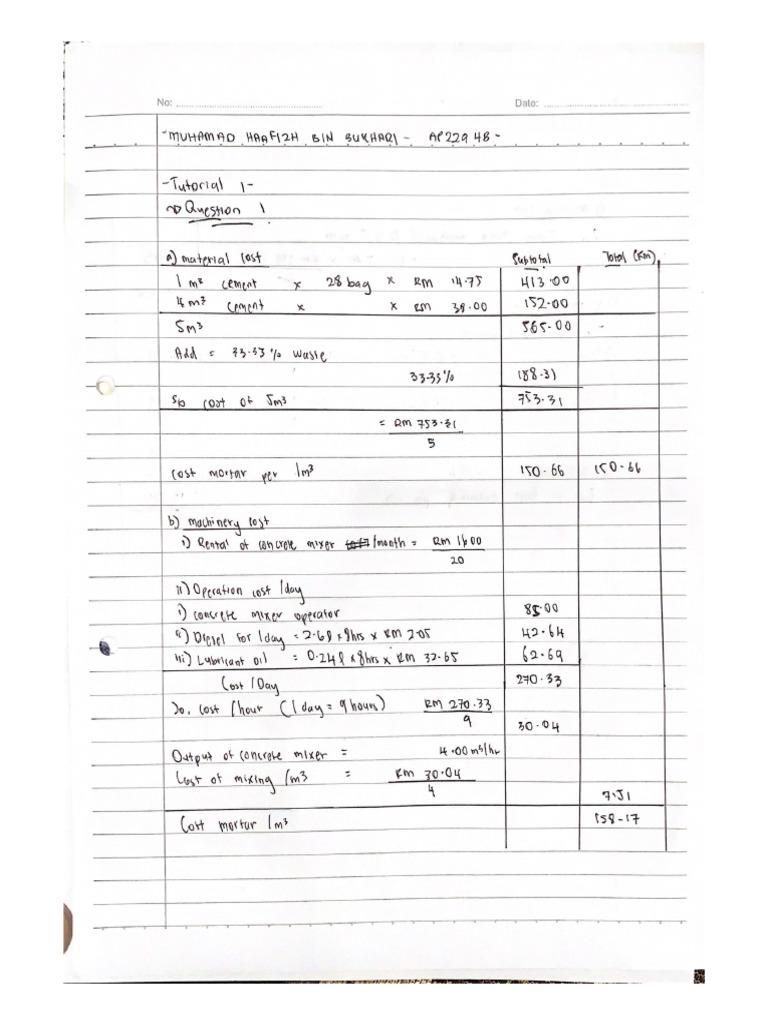 No: Date:
- MUHAMAD HAAFIZH BIN SUKHARI - AP229 48 -
- Tutorial 1 -
Question 1
a) material cost Subtotal Total (RM)
1 m³ cement x 28 bag x RM 14.75 413.00
4 m³ cement x x RM 38.00 152.00
5m³ 565.00 -
Add = 33.33% waste
33.33% 188.31
So cost of 5m³ 753.31
= RM 753.31
5
Cost mortar per 1m³ 150.66 150.66
b) machinery cost
i) Rental of concrete mixer /month = RM 1600
20
ii) Operation cost /day
i) concrete mixer operator 85.00
ii) Diesel for 1day = 2.6l x 8hrs x RM 2.05 42.64
iii) Lubricant oil = 0.24l x 8hrs x RM 32.65 62.69
Cost / Day 270.33
So. cost /hour (1 day = 9 hours) RM 270.33
9 30.04
Output of concrete mixer = 4.00 m³/hr
Cost of mixing /m3 = RM 30.04
4 7.51
Cost mortar 1m³ 158-17